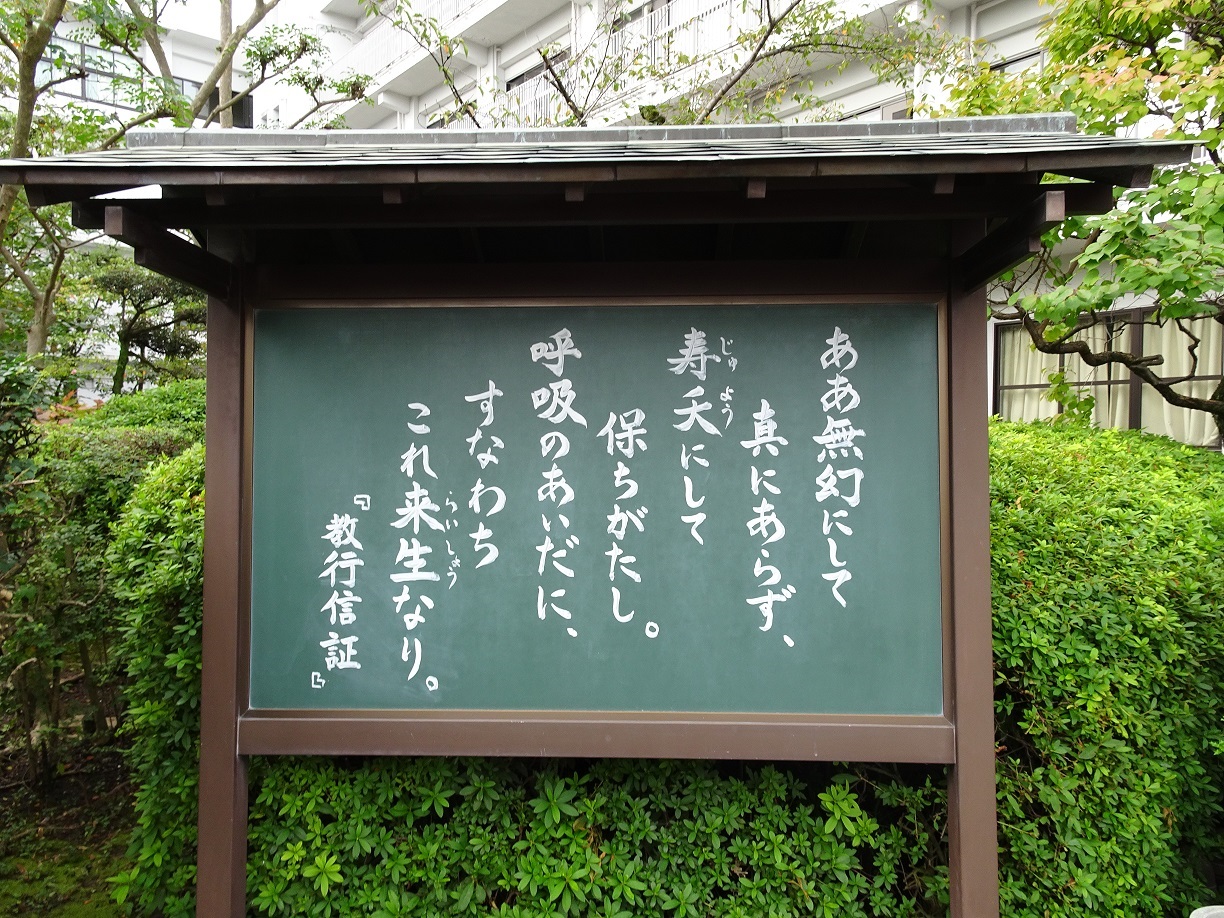 ああ無幻にして
真にあらず、
じゅよう
寿夭にして
保ちがたし。
呼吸のあいだに、
すなわち
らいしょう
これ来生なり。
『教行信証』